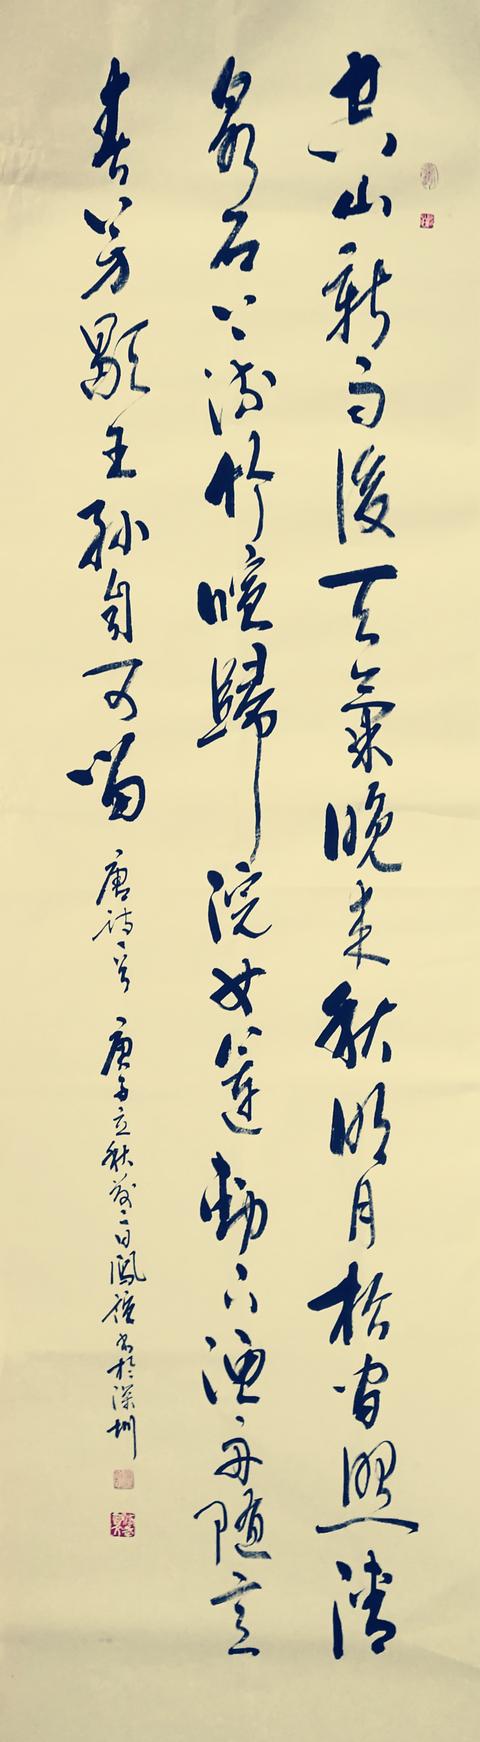 空山新雨後天氣晚来秋明月松間照清
泉石上流竹喧歸浣女蓮動下漁舟随意
春芳歇王孫自可留 唐詩一首 庚子立秋前二日鳳書於深圳